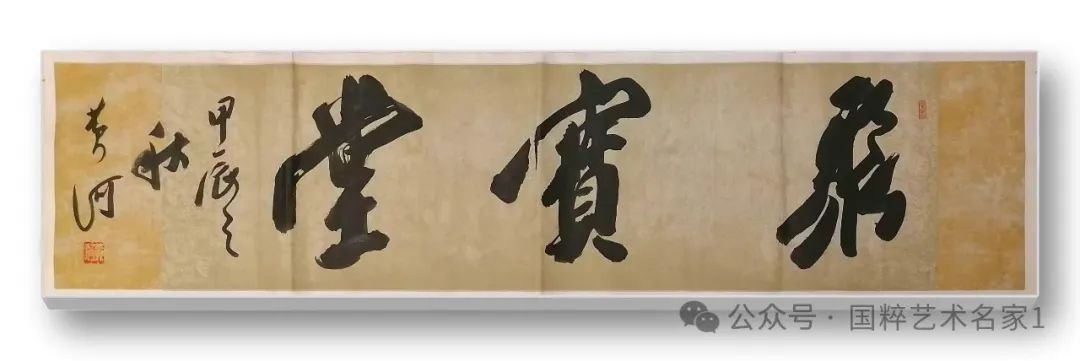 聚寶堂
甲辰之
秋
青河
公众号 · 国粹艺术名家1